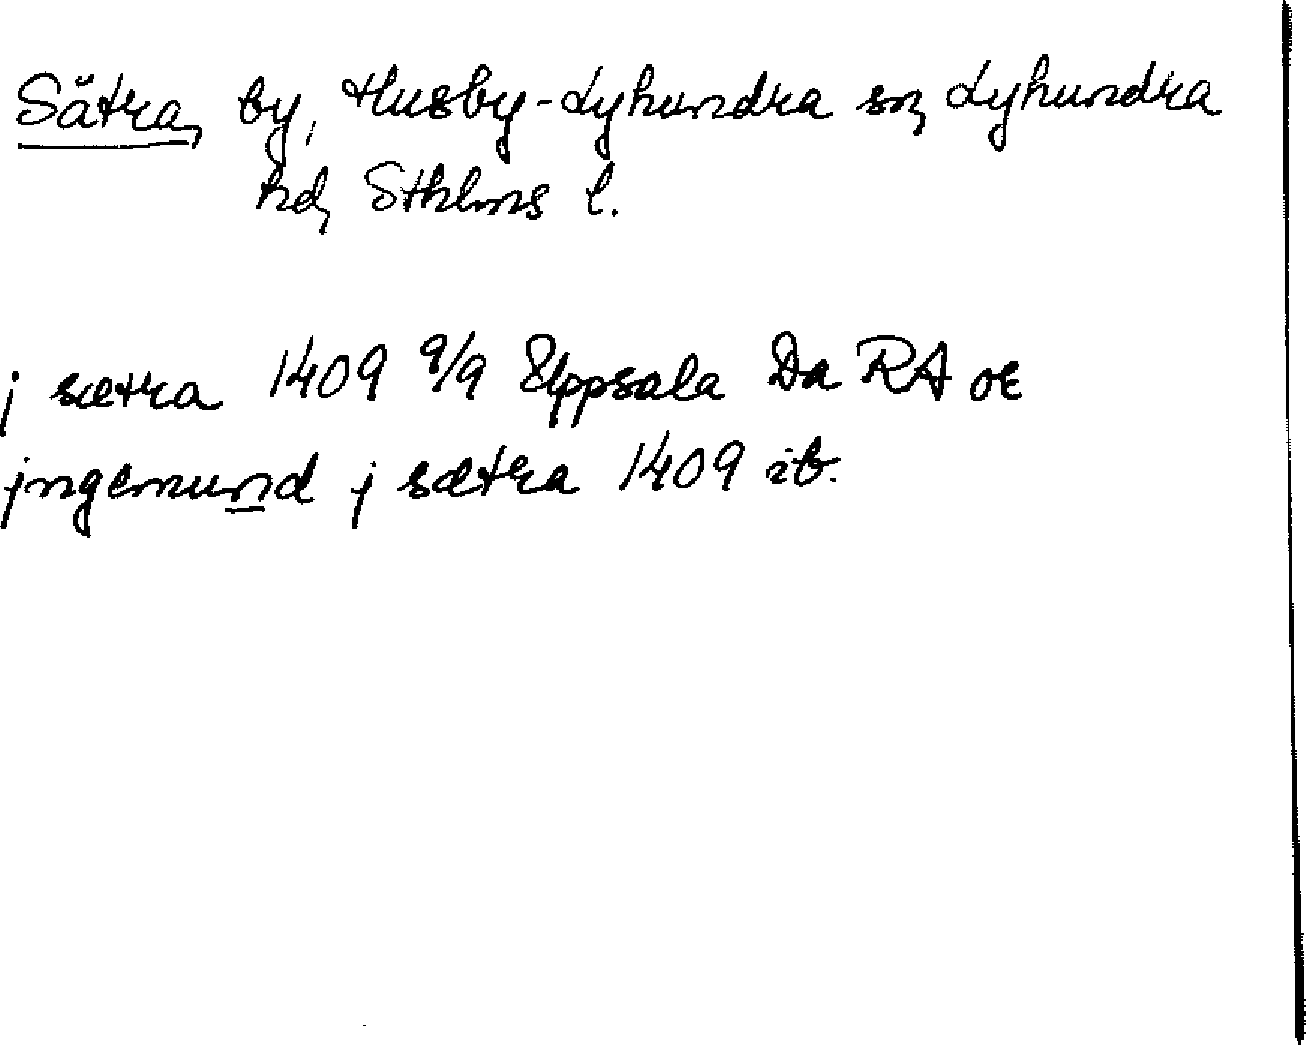 Sätra, by, Husby-Lyhundra sn, Lyhundra
hd, Sthlms l.
j sætra 1409 9/9 Uppsala Da RA or
jngemund j sætra 1409 ib.